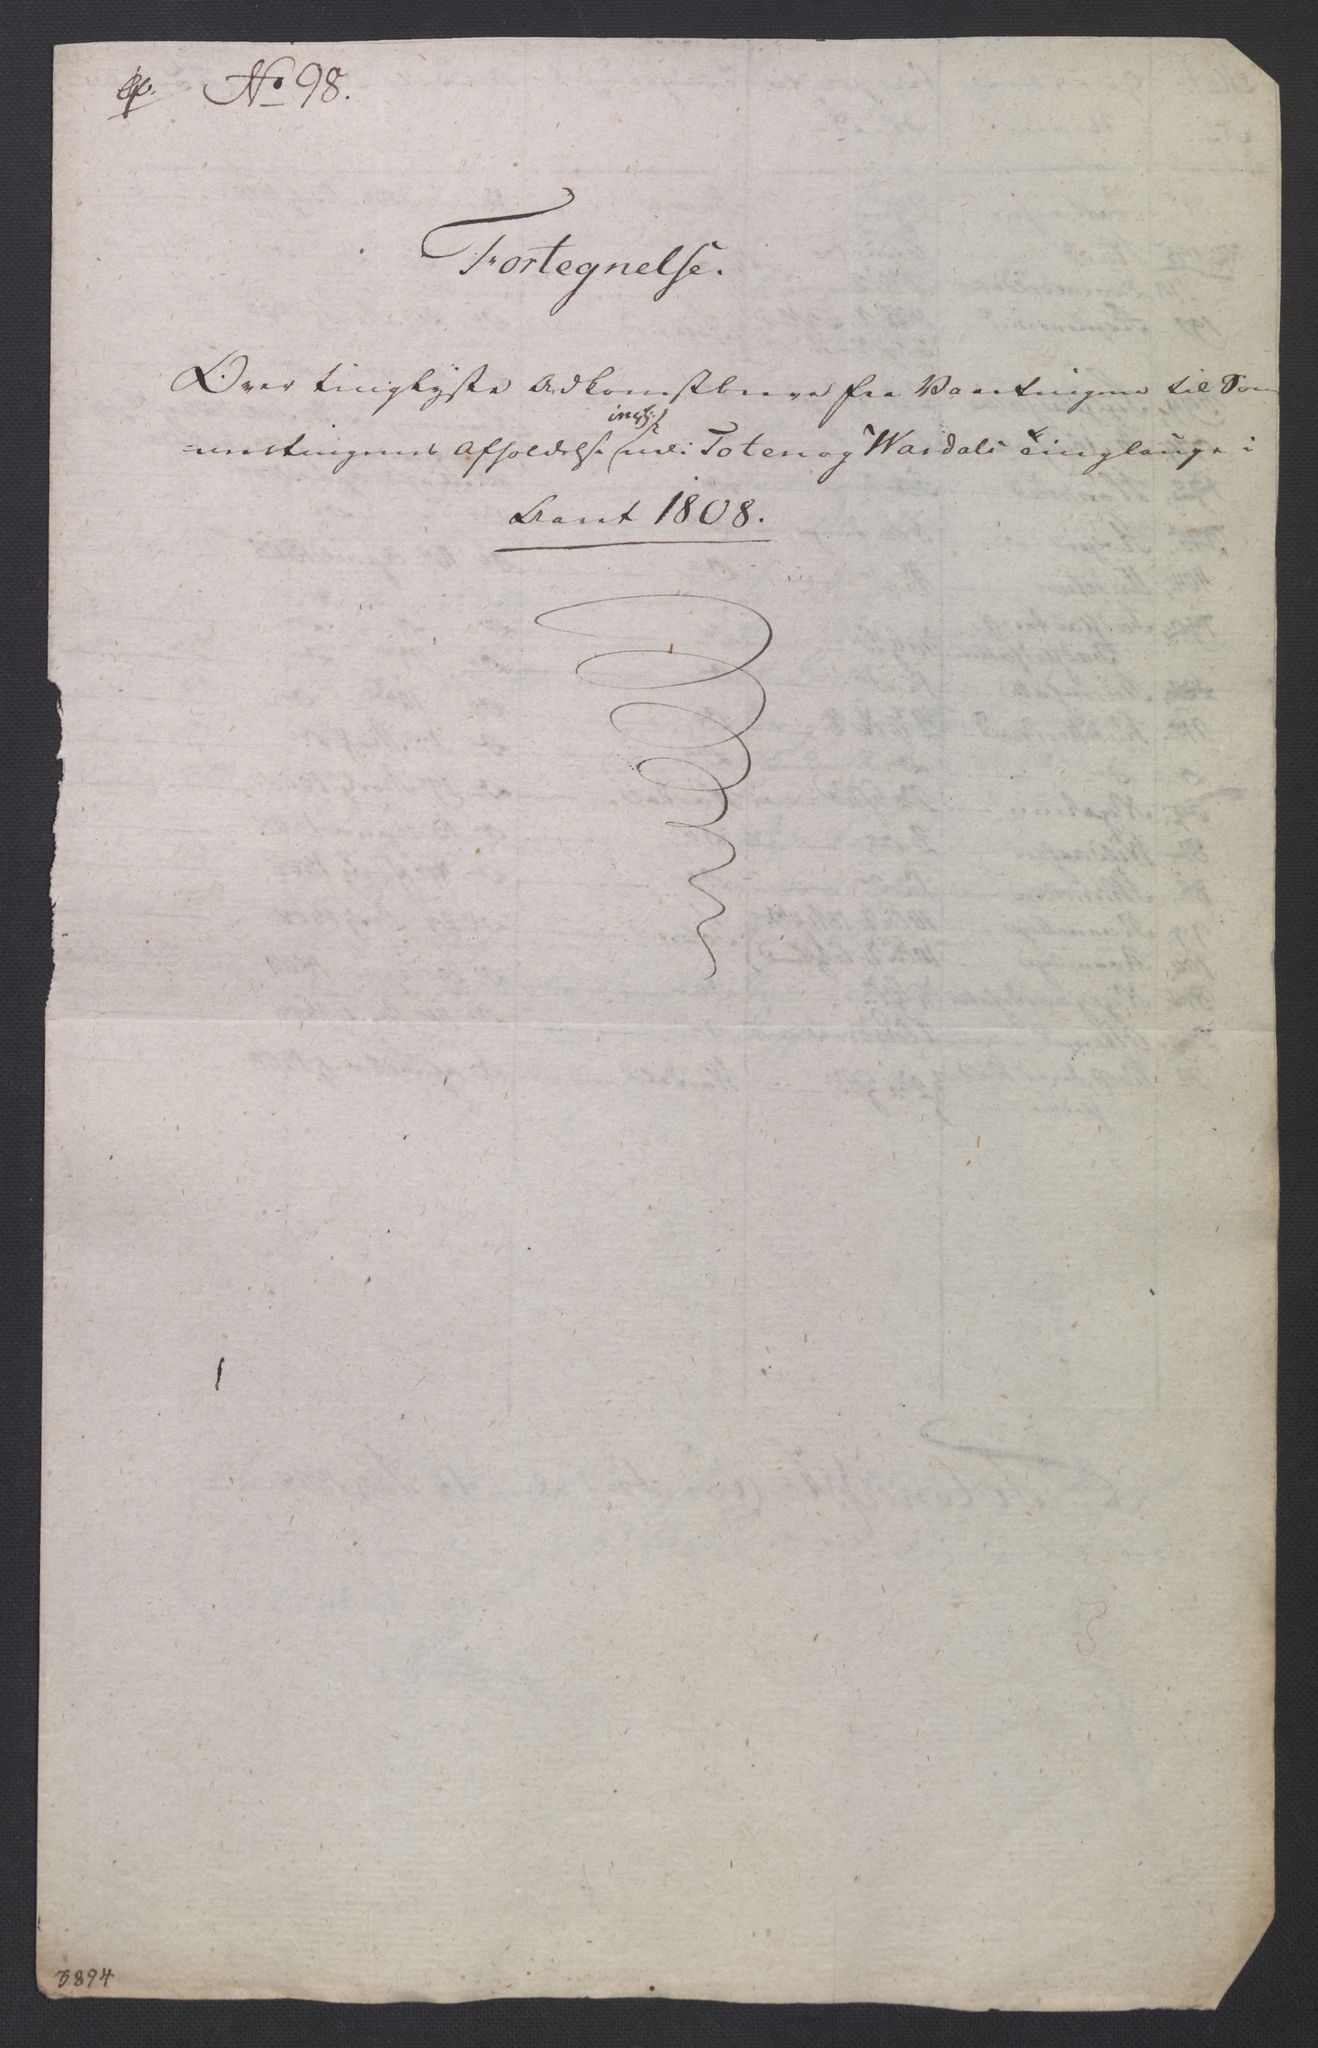 No 98.
Fortegnelse.
Over tinglyste Adkomstbreve fra Vaartingene til Som
incl:
=mertingenes Afholdelse udi Toten og Wardals Tinglauge i
Aaret 1808.
3894